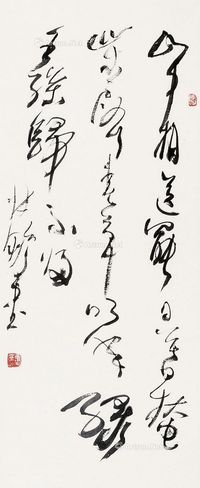 山中相送罷日暮掩
柴扉春草明年綠
王孫歸不歸
林鵬書